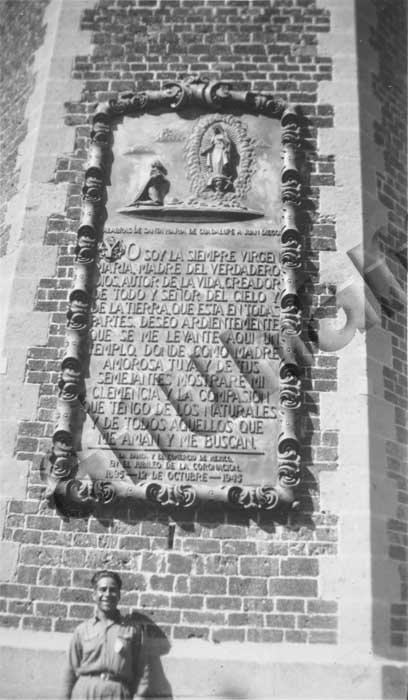 PALABRAS DE SANTA MARIA DE GUADALUPE A JUAN DIEGO
YO SOY LA SIEMPRE VIRGEN
MARIA, MADRE DEL VERDADERO
DIOS, AUTOR DE LA VIDA, CREADOR
DE TODO Y SEÑOR DEL CIELO Y
DE LA TIERRA, QUE ESTA EN TODAS
PARTES. DESEO ARDIENTEMENTE
QUE SE ME LEVANTE AQUI UN
TEMPLO, DONDE COMO MADRE
AMOROSA TUYA Y DE TUS
SEMEJANTES MOSTRARE MI
CLEMENCIA Y LA COMPASION
QUE TENGO DE LOS NATURALES
Y DE TODOS AQUELLOS QUE
ME AMAN Y ME BUSCAN.
LA BANCA Y EL COMERCIO DE MEXICO,
EN EL JUBILEO DE LA CORONACION.
1895 — 12 DE OCTUBRE — 1945